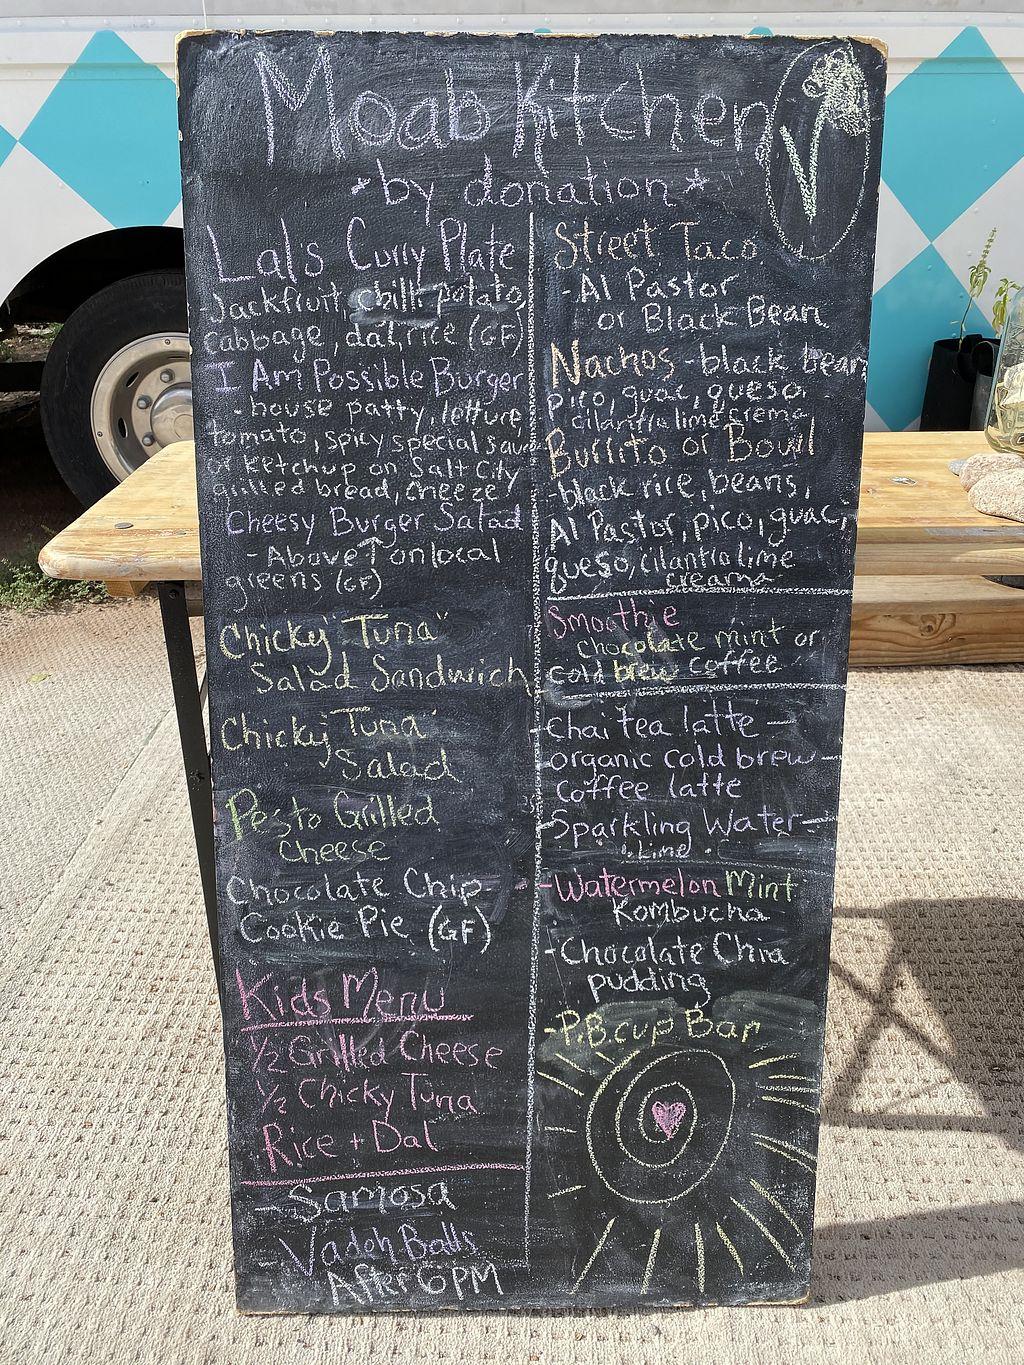 Moab Kitchen
V
*by donation*
Lal's Curry Plate
Jackfruit, chilli potato,
cabbage, dal, rice (GF)
I Am Possible Burger
- house patty, letture,
tomato, spicy special sauce
or ketchup on Salt City
grilled bread, cheeze
Cheesy Burger Salad
- Above ↑ on local
greens (GF)
Chicky "Tuna"
Salad Sandwich
Chicky "Tuna"
Salad
Pesto Grilled
Cheese
Chocolate Chip
Cookie Pie (GF)
Kids Menu
1/2 Grilled Cheese
1/2 Chicky Tuna
Rice + Dal
- Samosa
- Vadeh Balls
After 6PM
Street Taco
- Al Pastor
or Black Bean
Nachos - black bean
pico, guac, queso,
cilantro lime crema
Burrito or Bowl
- black rice, beans,
Al Pastor, pico, guac,
queso, cilantro lime
creama
Smoothie
chocolate mint or
cold brew coffee
- Chai tea latte -
- organic cold brew -
coffee latte
- Sparkling Water -
Lime
- Watermelon Mint
Kombucha
- Chocolate Chia
pudding
- P.B. cup Bar